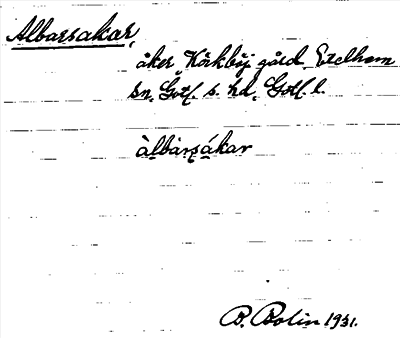 Albarsakar,
åker Körkböj gård, Etelhem
sn, Gotl. s. hd, Gotl. l.
àlbàrṣákar
B. Bolin 1931.